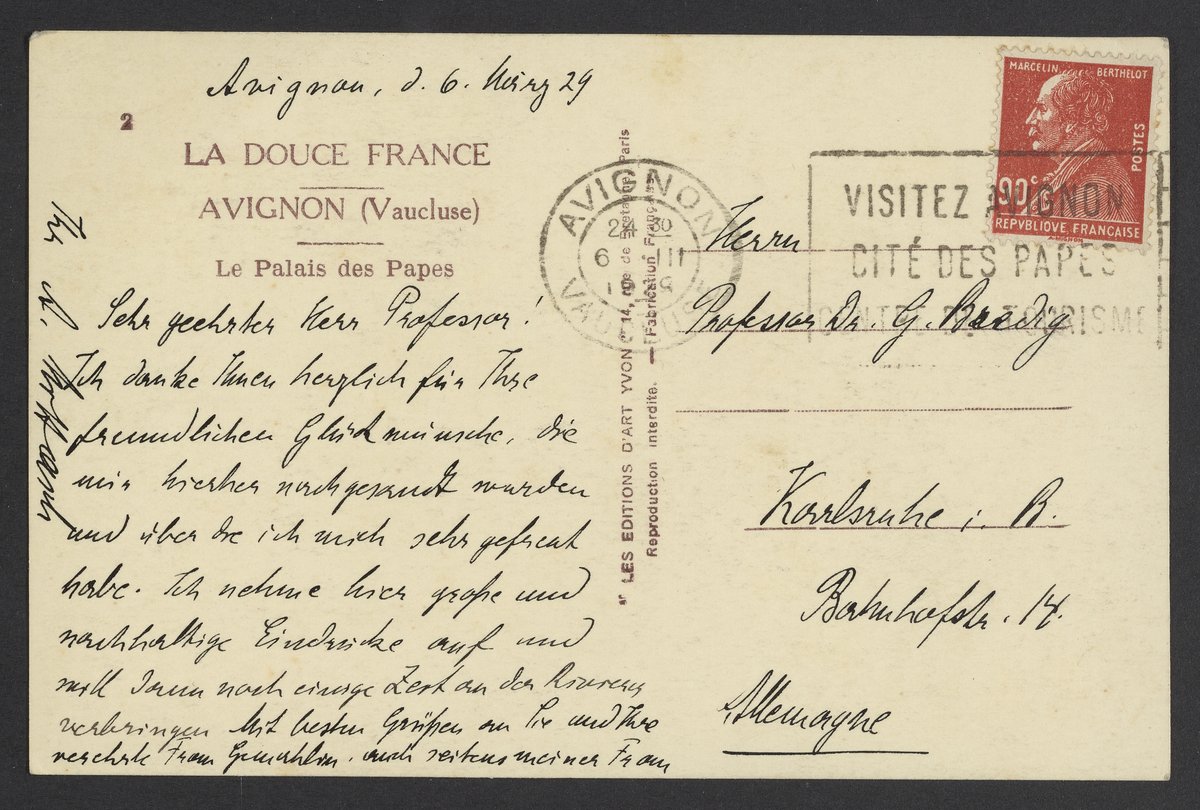 Avignon, d. 6. März 29
2
LA DOUCE FRANCE
AVIGNON (Vaucluse)
Le Palais des Papes
Sehr geehrter Herr Professor!
Ich danke Ihnen herzlich für Ihre
freundlichen Glückwünsche, die
mir hierher nachgesandt wurden
und über die ich mich sehr gefreut
habe. Ich nehme hier große und
nachhaltige Eindrücke auf und
will dann noch einige Zeit an der Riviera
verbringen Mit besten Grüßen an Sie und Ihre
verehrte Frau Gemahlin. auch seitens meiner Frau
Ihr A.
LES EDITIONS D'ART YVON 14, rue de Bretagne, Paris
Reproduction interdite. — (Fabrication Française)
AVIGNON
6 III
VAUCLUSE
MARCELIN BERTHELOT
POSTES
90c
REPVBLIQVE FRANÇAISE
VISITEZ AVIGNON
CITÉ DES PAPES
TOURISME
Herrn
Professor Dr. G. Bredig
Karlsruhe i. B.
Bahnhofstr. 14.
Allemagne